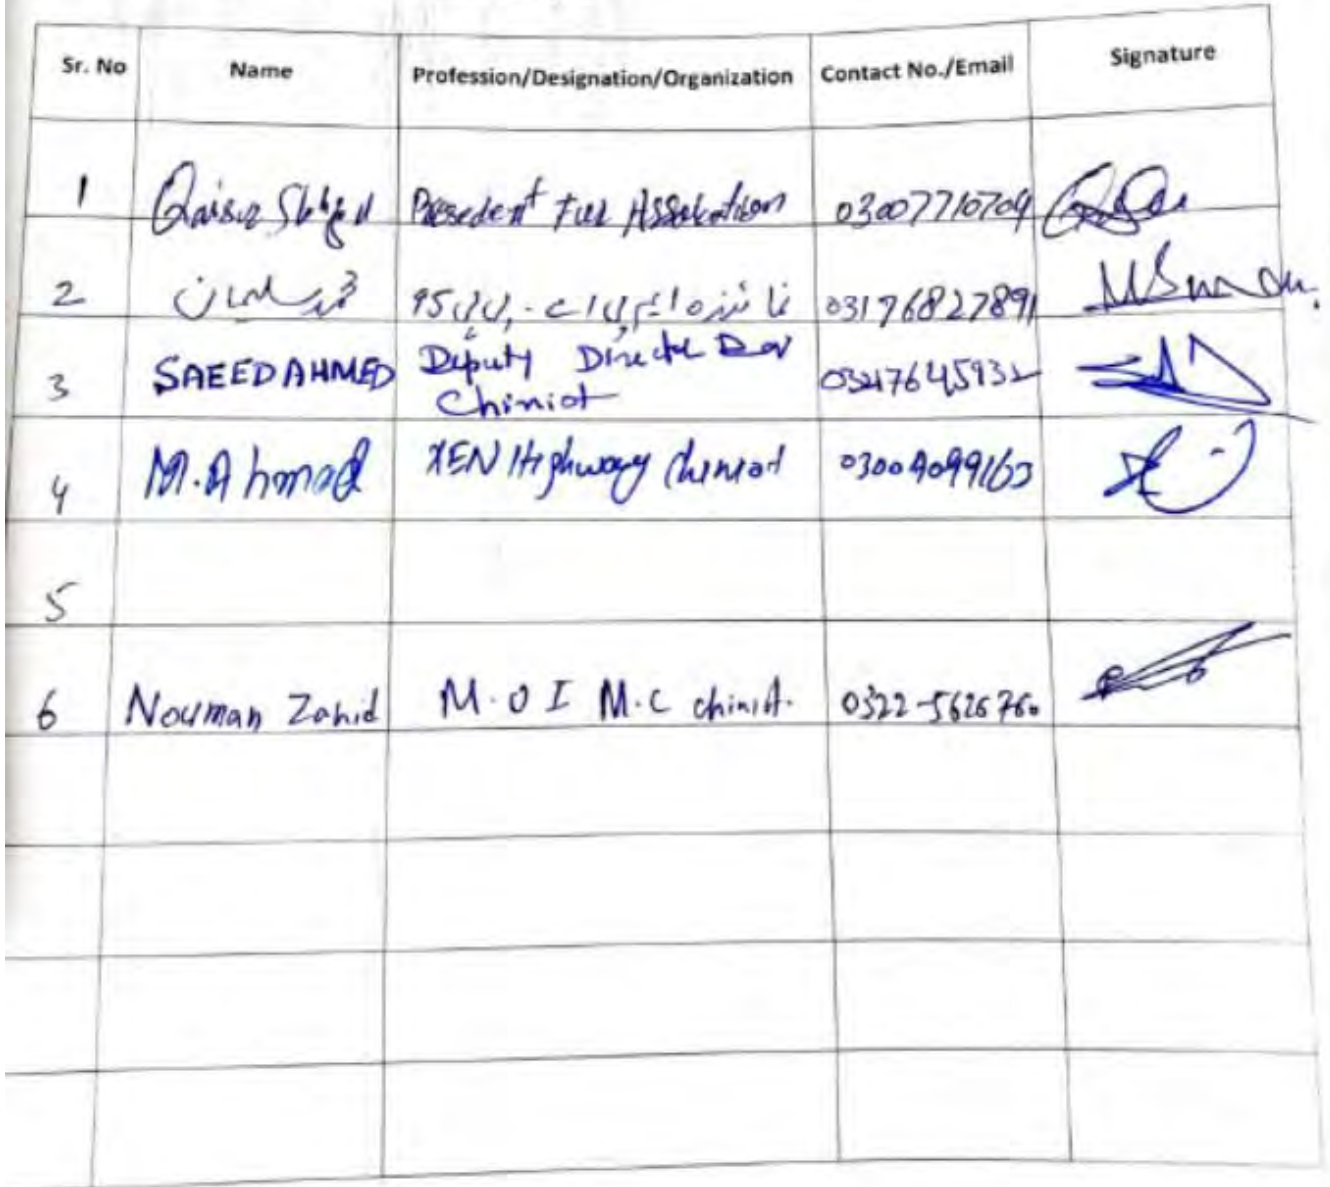 Sr. No Name Profession/Designation/Organization Contact No./Email Signature
1 Qaisar Presedent Assokation 03007710704
2 محمد سلیمان 03176827891
3 SAEED AHMED Deputy Director Dev 03217645932
Chiniot
4 M.Ahmad XEN Highway Chiniot 03004099163
5
6 Nouman Zahid M.O I M.C chiniot. 0322-5626760